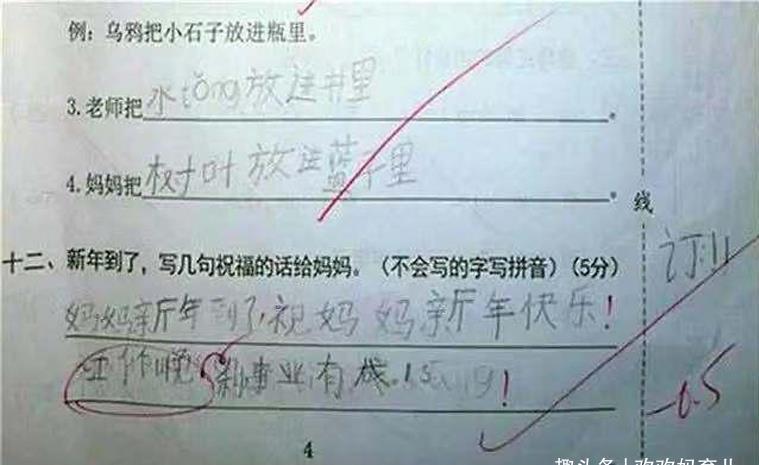 例：乌鸦把小石子放进瓶里。
3.老师把水tǒng放进井里。
4.妈妈把树叶放进蓝子里。
线
十二、新年到了，写几句祝福的话给妈妈。（不会写的字写拼音）（5分）
订:11
妈妈新年到了,祝妈妈新年快乐！
工作 事业有成.
-0.5
4